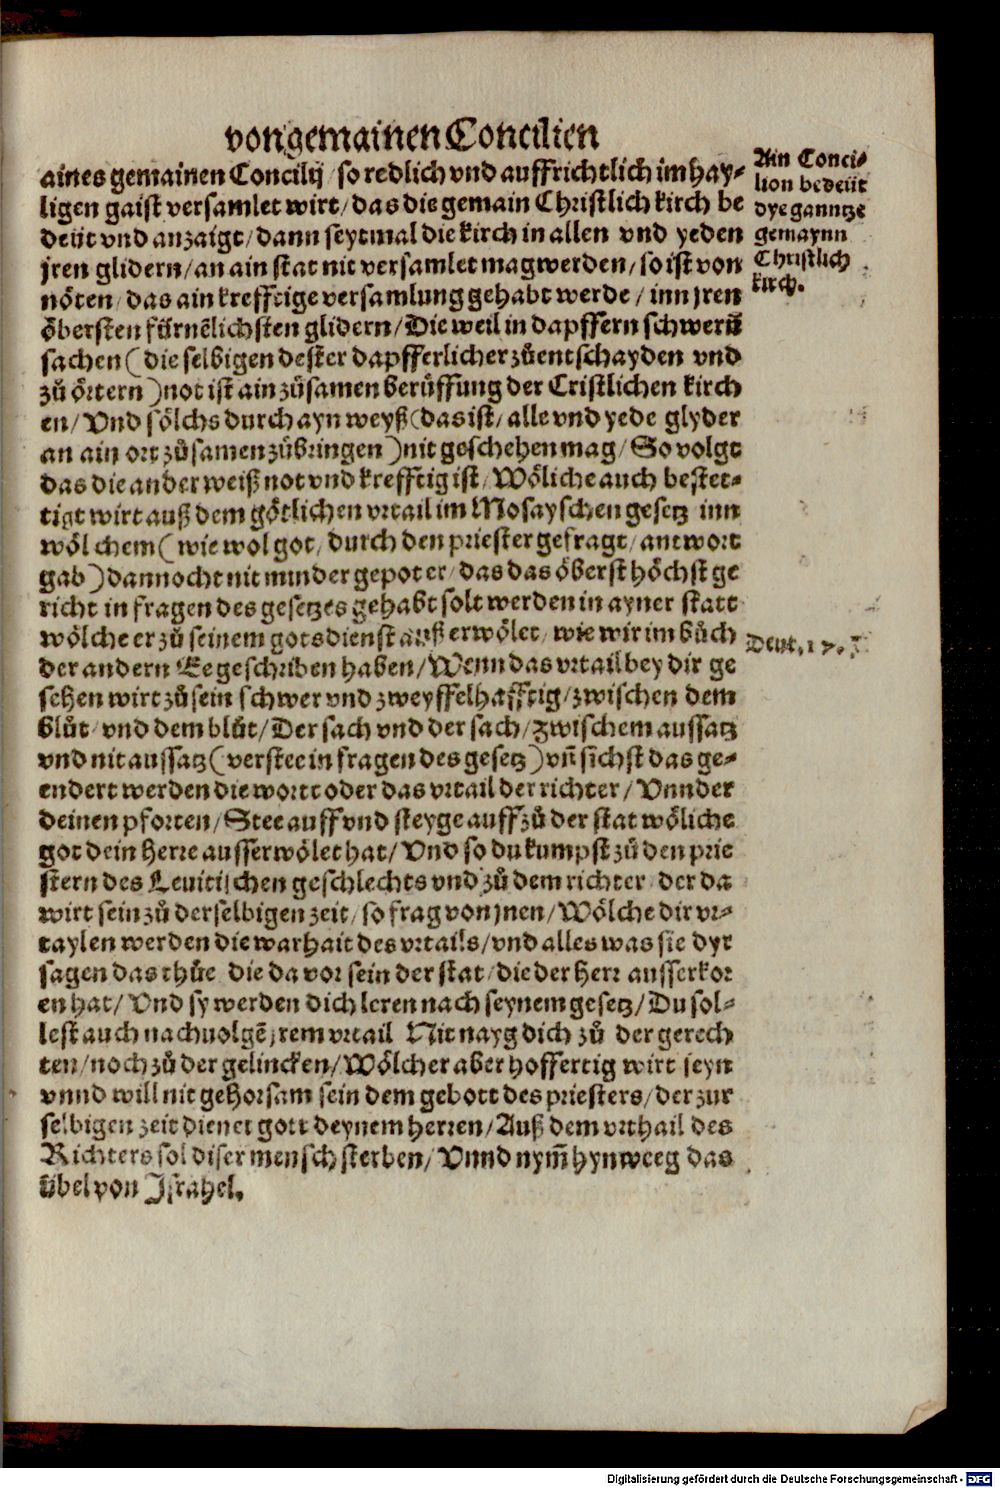 von gemainen Concilien
aines gemainen Concilij / so redlich vnd auffrichtlich im hay-
ligen gaist versamlet wirt / das die gemain Christlich kirch be
deüt vnd anzaigt / dann seytmal die kirch in allen vnd yeden
jren glidern / an ain stat nit versamlet mag werden / so ist von
nöten / das ain krefftige versamlung gehabt werde / inn jren
öbersten fürnẽlichsten glidern / Die weil in dapffern schwerñ
sachen ( die selbigen dester dapfferlicher zůentschayden vnd
zů örtern ) not ist ain zůsamen berüffung der Cristlichen kirch
en / Vnd sölchs durch ayn weyß ( das ist / alle vnd yede glyder
an ain ort zůsamen zůbringen ) nit geschehen mag / So volgt
das die ander weiß not vnd krefftig ist / Wöliche auch bestet-
tigt wirt auß dem götlichen vrtail im Mosayschen gesetz inn
wölchem ( wie wol got / durch den priester gefragt / antwort
gab ) dannocht nit minder gepot er / das das öberst höchst ge
richt in fragen des gesetzes gehabt solt werden in ayner statt
wölche er zů seinem gotsdienst auß erwölet / wie wir im bůch
der andern Ee geschriben haben / Wenn das vrtail bey dir ge
sehen wirt zů sein schwer vnd zweyffelhafftig / zwischen dem
blůt / vnd dem blůt / Der sach vnd der sach / zwischem aussatz
vnd nit aussatz ( verstee in fragen des gesetz ) vñ sichst das ge-
endert werden die wortt oder das vrtail der richter / Vnnder
deinen pforten / Stee auff vnd steyge auff zů der stat wöliche
got dein herre ausserwölet hat / Vnd so du kumpst zů den prie
stern des Leuitischen geschlechts vnd zů dem richter der da
wirt sein zů derselbigen zeit / so frag von jnen / Wölche dir vr-
taylen werden die warhait des vrtails / vnd alles was sie dyr
sagen das thůe die da vor sein der stat / die der herr ausserkor
en hat / Vnd sy werden dich leren nach seynem gesetz / Du sol-
lest auch nachuolgẽ jrem vrtail Nit nayg dich zů der gerech
ten / noch zů der gelincken / Wölcher aber hoffertig wirt seyn
vnnd will nit gehorsam sein dem gebott des priesters / der zur
selbigen zeit dienet gott deynem herren / Auß dem vrthail des
Richters sol diser mensch sterben / Vnnd nym̃ hynweeg das
übel von Israhel.
Ain Conci-
lion bedeüt
dye ganntze
gemaynn
Christlich
kirch.
Deut. 17.
Digitalisierung gefördert durch die Deutsche Forschungsgemeinschaft - DFG